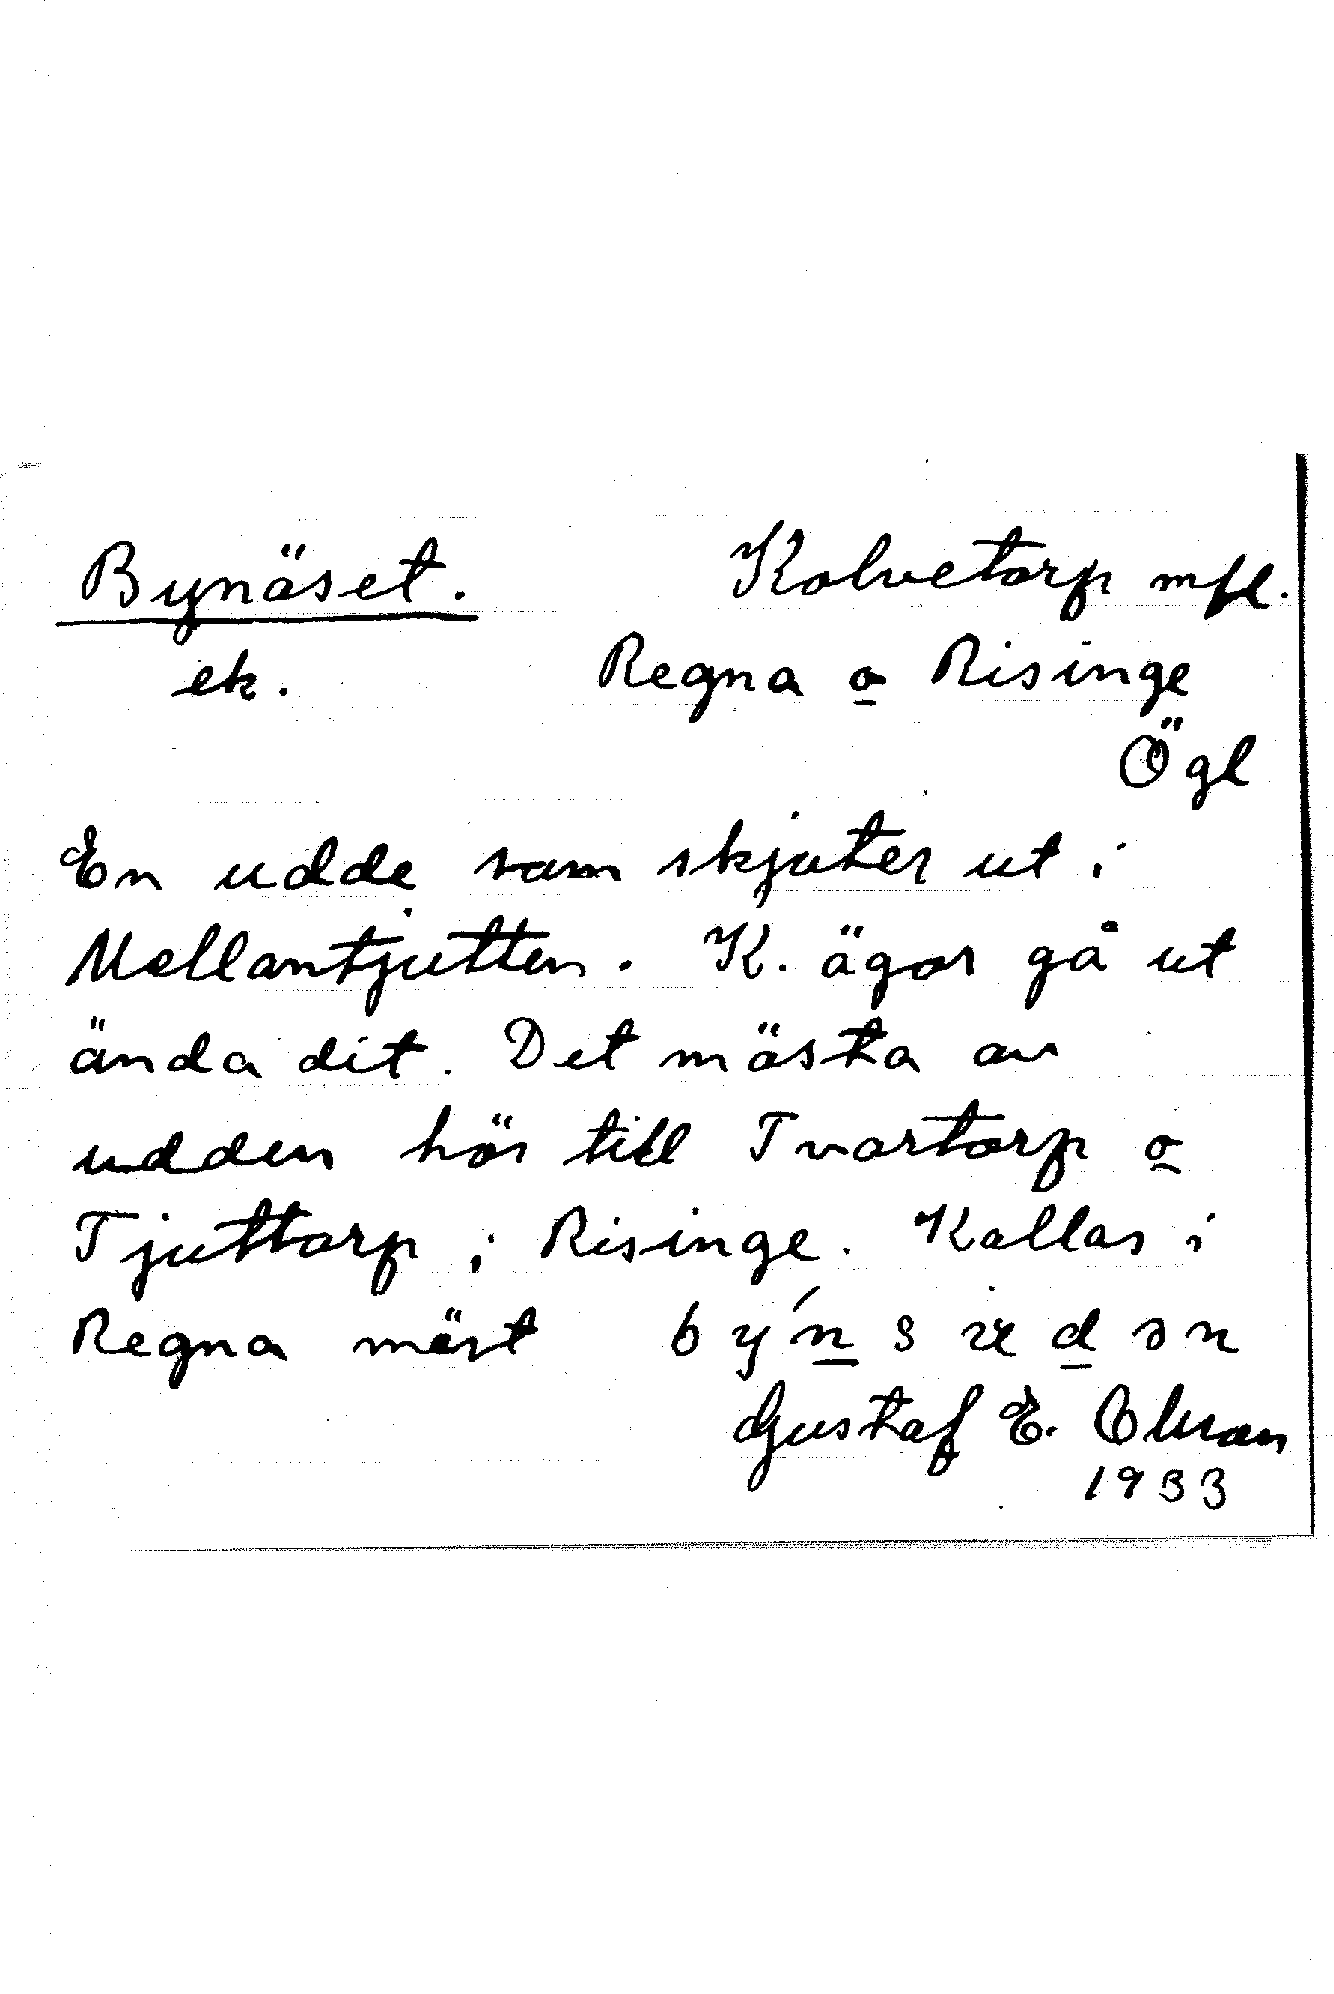 Bynäset. Kolvetorp mfl.
ek. Regna o Risinge
Ögl
En udde som skjuter ut i
Mellantjutten. K. ägor gå ut
ända dit. Det mästa av
udden hör till Tvartorp o
Tjuttorp i Risinge. Kallas i
Regna mäst
Gustaf E.
1933